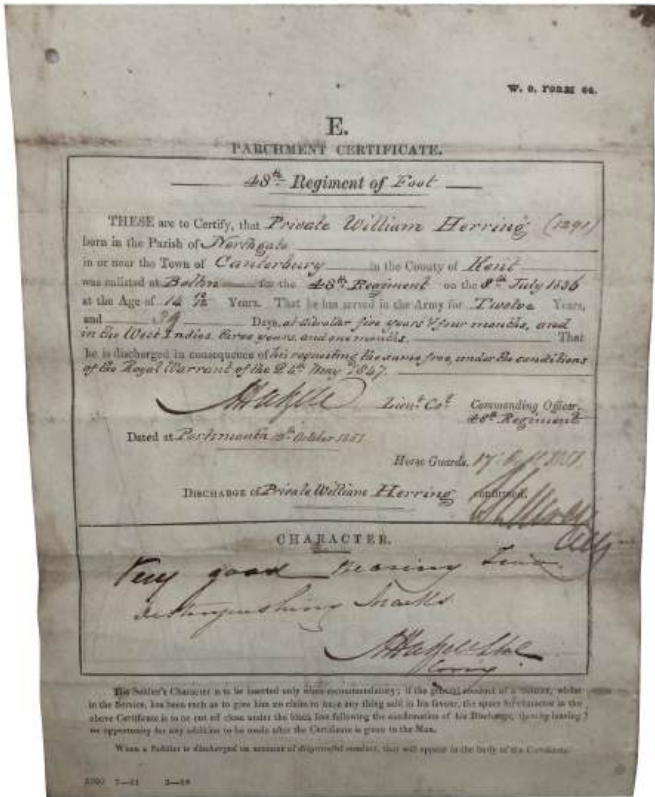 W. O. FORM 64.
E.
PARCHMENT CERTIFICATE.
48th Regiment of Foot
THESE are to Certify, that Private William Herring (1291)
born in the Parish of Northgate
in or near the Town of Canterbury in the County of Kent
was enlisted at Bolton for the 48th Regiment on the 8th July 1836
at the Age of 14 Years. That he has served in the Army for Twelve Years,
and 39 Days, at Gibraltar five years & four months, and
in the West Indies three years, and one months. That
he is discharged in consequence of his requesting the same free, under the conditions
of the Royal Warrant of the 24th May 1847.
Lieut Col Commanding Officer,
48th Regiment
Dated at Portsmouth October 1851
Horse Guards, 17
DISCHARGE of Private William Herring confirmed.
CHARACTER.
Very good Bearing
distinguishing marks
The Soldier's Character is to be inserted only when recommendatory; if the general account of a Soldier, whilst
in the Service, has been such as to give him no claim to have any thing said in his favour, the space for character in the
above Certificate is to be cut off close under the black line following the confirmation of his Discharge, thereby leaving
no opportunity for any addition to be made after the Certificate is given to the Man.
When a Soldier is discharged on account of disgraceful conduct, that will appear in the body of the Certificate.